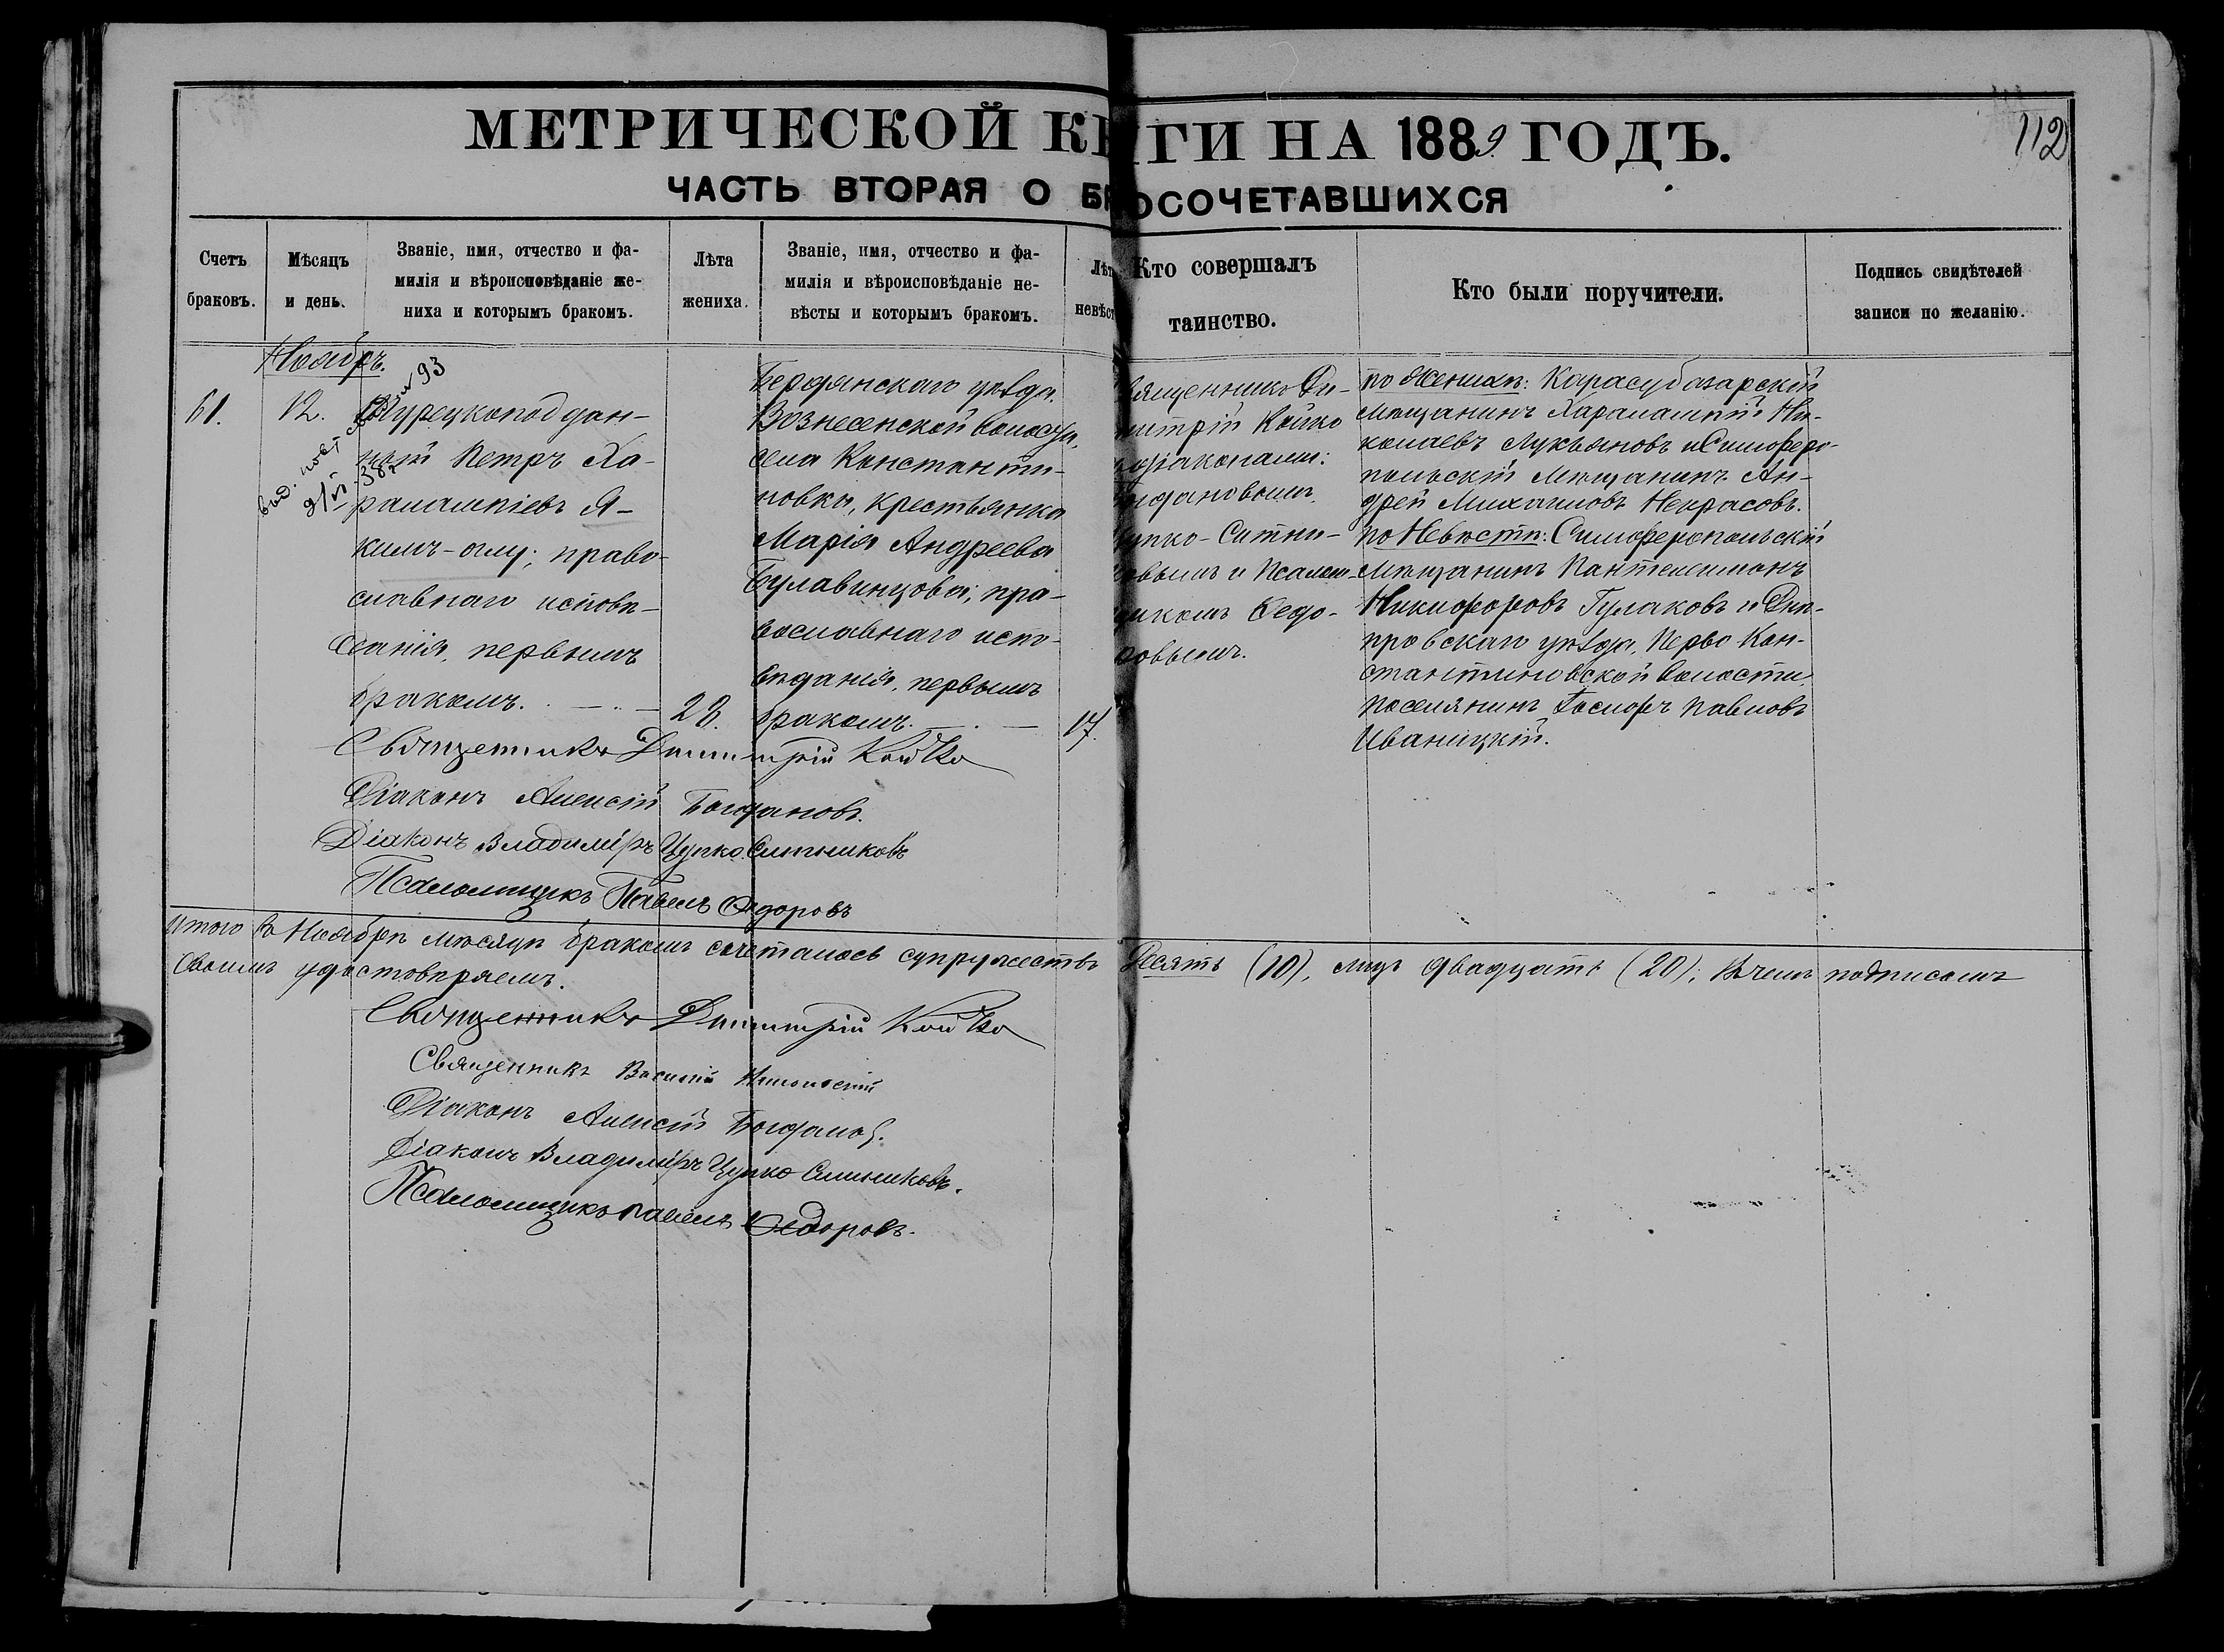 МЕТРИЧЕСКОЙ К
ГИ НА 1889. ГОДЪ.
112
ЧАСТЬ ВТОРАЯ О БР
ОСОЧЕТАВШИХСЯ
Счетъ
браковъ.
Мѣсяцъ
и день.
Званіе, имя, отчество и фа-
милія и вѣроисповѣданіе же-
ниха и которымъ бракомъ.
Лѣта
жениха.
Званіе, имя, отчество и фа-
милія и вѣроисповѣданіе не-
вѣсты и которымъ бракомъ.
Лѣт
невѣст
Кто совершалъ
таинство.
Кто были поручители.
Подпись свидѣтелей
записи по желанію.
Ноябрь.
61.
12.
выд.
93
382
Турецкоподдан-
ный Петръ Ха-
ралампіевъ Я-
кимъ-оглу; право-
славнаго исповѣ-
данія, первымъ
бракомъ.
28.
Бердянскаго уѣзда,
Вознесенской волости,
села Константи-
новки, крестьянка
Марія Андреева
Булавинцова; пра-
вославнаго испо-
вѣданія, первымъ
бракомъ.
17.
вященникъ Ди-
митрій Койко
діаконами:
гдановымъ,
упко-Ситни-
овымъ и Псалом-
щикомъ Ѳедо-
ровымъ.
по Женихѣ: Карасубазарскій
мѣщанинъ Харалампій Ни-
колаевъ Лукьяновъ и Симферо-
польскій мѣщанинъ Ан-
дрей Михаиловъ Некрасовъ.
по Невѣстѣ: Симферопольскій
мѣщанинъ Пантелеимонъ
Никифоровъ Гулаковъ и Днѣ-
провскаго уѣзда, Перво Кон-
стантиновской волости,
поселянинъ Іосифъ Павловъ
Иваницкій.
Священникъ Димитрій Койко
Діаконъ Алексій Богдановъ.
Діаконъ Владиміръ Цупко Ситниковъ
Псаломщикъ Павелъ Ѳедоровъ
Итого въ Ноябрѣ мѣсяцѣ бракомъ сочеталось супружествъ Десять (10), лицъ двадцать (20); въ чемъ подписомъ
своимъ удостовѣряемъ.
Священникъ Димитрій Койко
Священникъ Василій
Діаконъ Алексій Богдановъ.
Діаконъ Владиміръ Цупко Ситниковъ.
Псаломщикъ Павелъ Ѳедоровъ.